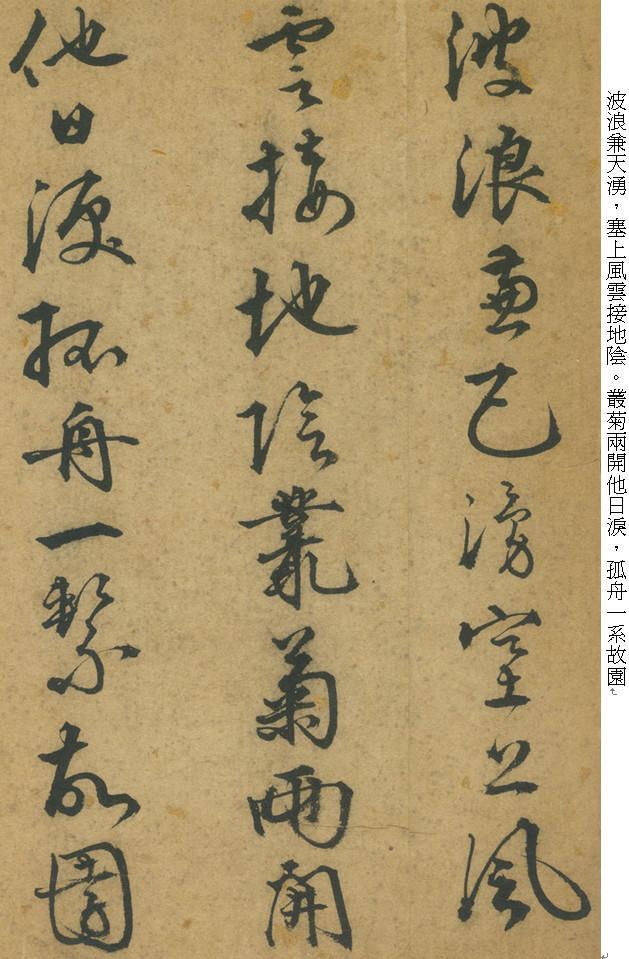 波浪兼天湧，塞上風雲接地陰。叢菊兩開他日淚，孤舟一系故園
波浪兼已湧塞上風
雲接地陰叢菊兩開
他日淚孤舟一繫故園